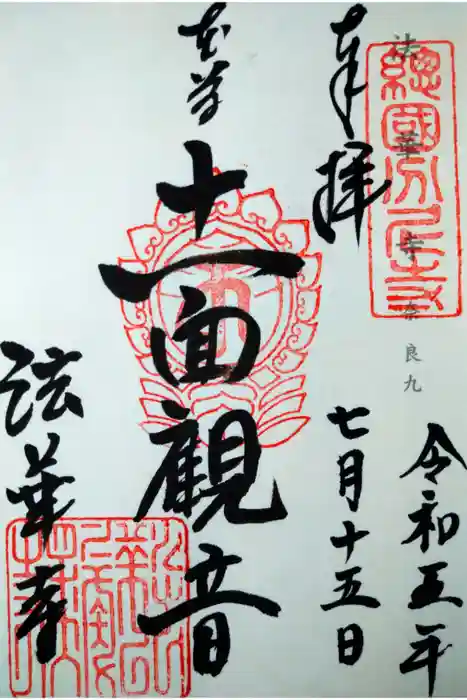 總國分尼寺
法華寺 奈良九
奉拝
令和五年
七月十五日
本尊
十一面觀音
法華寺